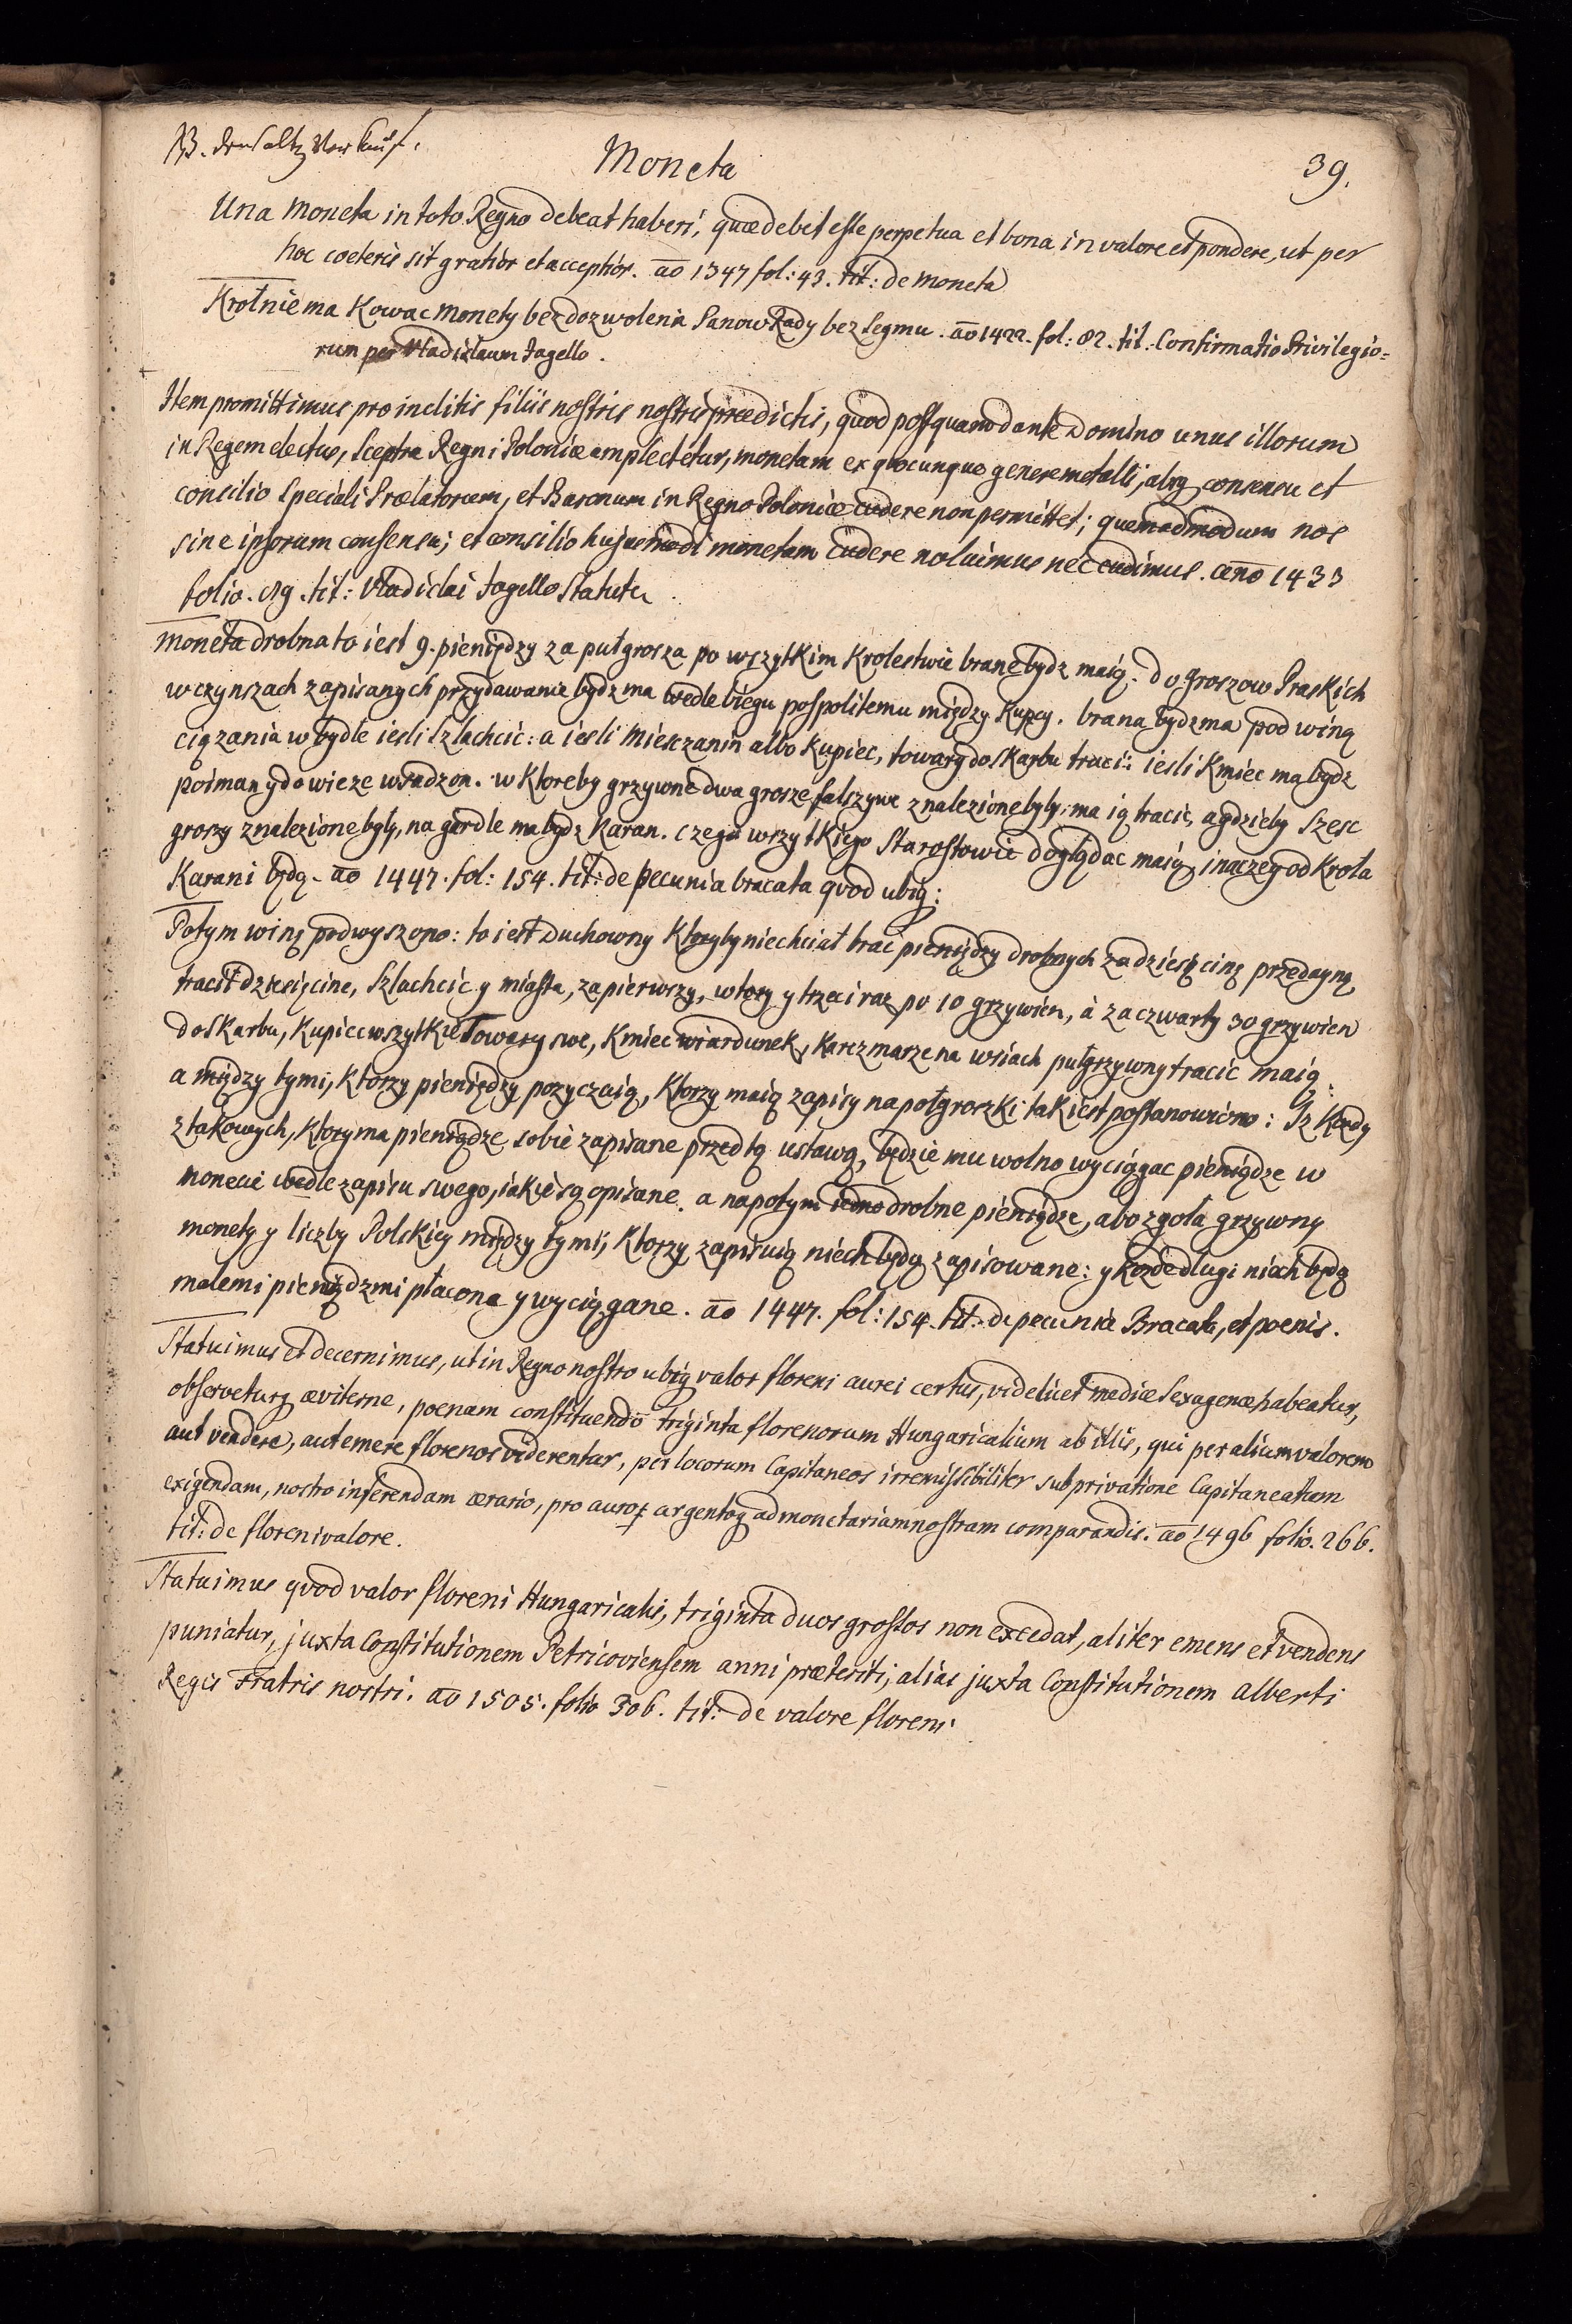 NB. der Saltz Verkauf.
Moneta
39.
Una Moneta in toto Regno debeat haberi, quæ debet esse perpetua et bona in valore et pondere, ut per
hoc coeteris sit gratior et acceptior. ao 1347 fol: 43. tit: de Moneta
Krol nie ma Kowac Monety bez dozwolenia Panow Rady bez Segmu. ao 1422. fol: 82. tit: Confirmatio Privilegio=
rum per Vladislaum Jagello.
Item promittimus pro inclitis filiis nostris nostris prædictis, quod postquam dante Domino unus illorum
in Regem electus, Sceptra Regni Poloniæ amplectetur, monetam ex quocunque genere metalli, absq consensu et
consilio Speciali Prælatorum, et Baronum in Regno Poloniæ cudere non permittet; quemadmodum nos
sine ipsorum consensu, et consilio hujusmodi monetam cudere noluimus nec cudimus. ano 1433
folio. 89. tit: Vladislai Jagello Statuta.
Moneta drobna to iest 9. pieniędzy za puł grosza po wszytkim Krolestwie brane bydz maią. Do Groszow Praskich
w czynszach zapisanych przydawanie bydz ma wedle biegu pospolitemu między Kupcy. brana bydz ma pod winą
ciązania w bydle iesli Szlachcic: a iesli Miesczanin albo Kupiec, towary do skarbu traci: iesli Kmiec ma bydz
poimany do wieze wsadzon. w Ktoreby grzywne dwa grosze falszywe znalezione byly, ma ią tracic, a gdzieby Szesc
groszy znalezione były, na gardle ma bydz Karan. Czego wszytkiego Starostowie doglądac maią, inaczey od Krola
Karani będą. ao 1447. fol: 154. tit: de pecunia bracata quod ubiq:
Potym winę podwyszono: to iest Duchowny Ktoryby niechciał brac pieniędzy drobnych za dziesięcinę przedayną
tracił dziesięcine, Szlachcic y miasta, za pierwszy, wtory y trzeci raz po 10 grzywien, à za czwarty 30 grzywien
do skarbu, Kupiec wszytkie Towary swe, Kmiec wiardunek, Karczmarze na wsiach pułgrzywny tracic maią.
a między tymi, Ktorzy pieniędzy pozyczaią, Ktorzy maią zapisy na połgroszki tak iest postanowiono: Iz Kozdy
z takowych, Ktory ma pieniądze sobie zapisane przed tą ustawą, będzie mu wolno wyciągac pieniądze w
monecie wedle zapisu swego, iakie są opisane. a napotym iedno drobne pieniądze, abo zgoła grzywny
monety y liczby Polskiey między tymi, Ktorzy zapisuią niech będą zapisowane: y Kozde dlugi niech będą
malemi pieniędzmi płacone y wyciągane. ao 1447. fol: 154. tit: de pecunia Bracata, et poenis.
Statuimus et decernimus, ut in Regno nostro ubiq valor floreni aurei certus, videlicet mediæ Sexagenæ habeatur,
observeturq æviterne, poenam constituendo triginta florenorum Hungaricalium ab illis, qui per alium valorem
aut vendere, aut emere florenos viderentur, per locorum Capitaneos irremissibiliter sub privatione Capitaneatum
exigendam, nostro inferendam ærario, pro auroq argentoq ad monetariam nostram comparandis. ao 1496 folio. 266.
tit: de floreni valore.
Statuimus quod valor floreni Hungaricalis, triginta duos grossos non excedat, aliter emens et vendens
puniatur, juxta Constitutionem Petricoviensem anni præteriti, alias juxta Constitutionem Alberti
Regis Fratris nostri. ao 1505. folio 306. tit: de valore floreni.